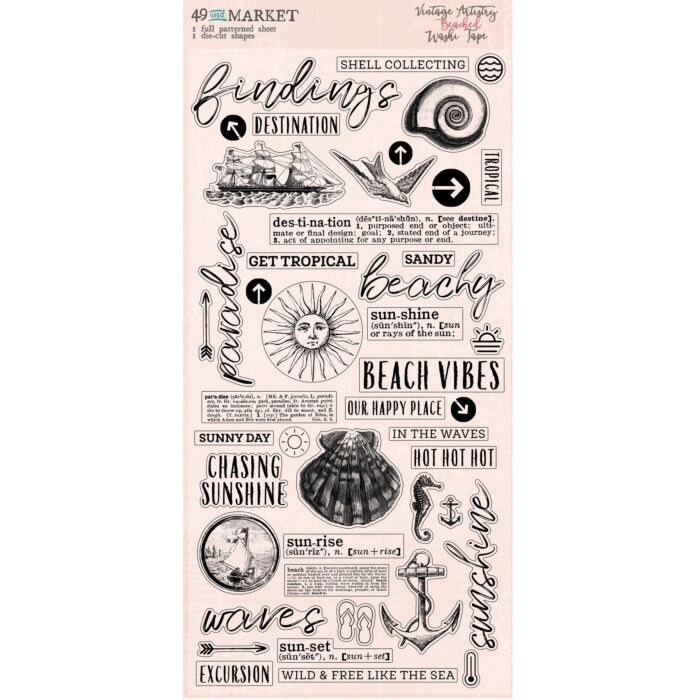 49 and MARKET
1 full patterned sheet
1 die-cut shapes
Vintage Artistry
Beached
Washi Tape
SHELL COLLECTING
findings
DESTINATION
TROPICAL
des·ti·na·tion (dĕs″tĭ-nā′shŭn), n. [see destine].
1, purposed end or object; ulti-
mate or final design; goal; 2, stated end of a journey;
3. act of appointing for any purpose or end.
paradise
GET TROPICAL
SANDY
beachy
sun-shine
(sŭn′shīn″), n. [sun
or rays of the sun;
BEACH VIBES
par′a-dise
OUR HAPPY PLACE
SUNNY DAY
IN THE WAVES
HOT HOT HOT
CHASING
SUNSHINE
sun-rise
(sŭn′rīz″), n. [sun+rise]
beach
sunshine
waves
sun-set
(sŭn′sĕt), n. [sun+set]
EXCURSION
WILD & FREE LIKE THE SEA